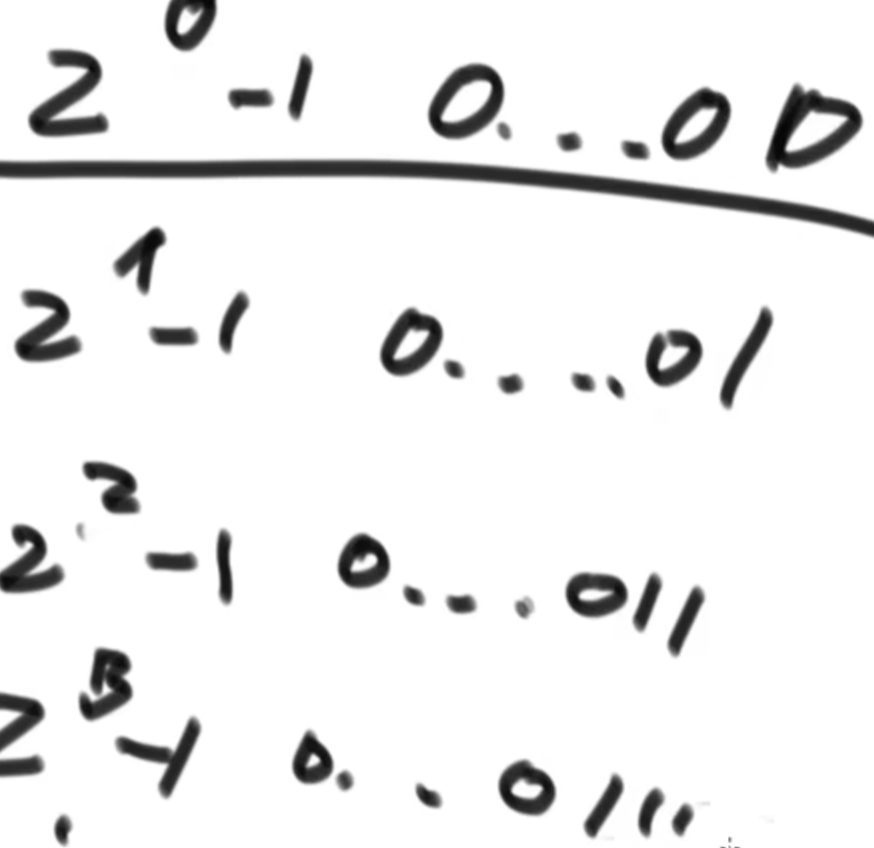 2⁰-1 0...00
2¹-1 0....01
2²-1 0....011
2³-1 0...0111